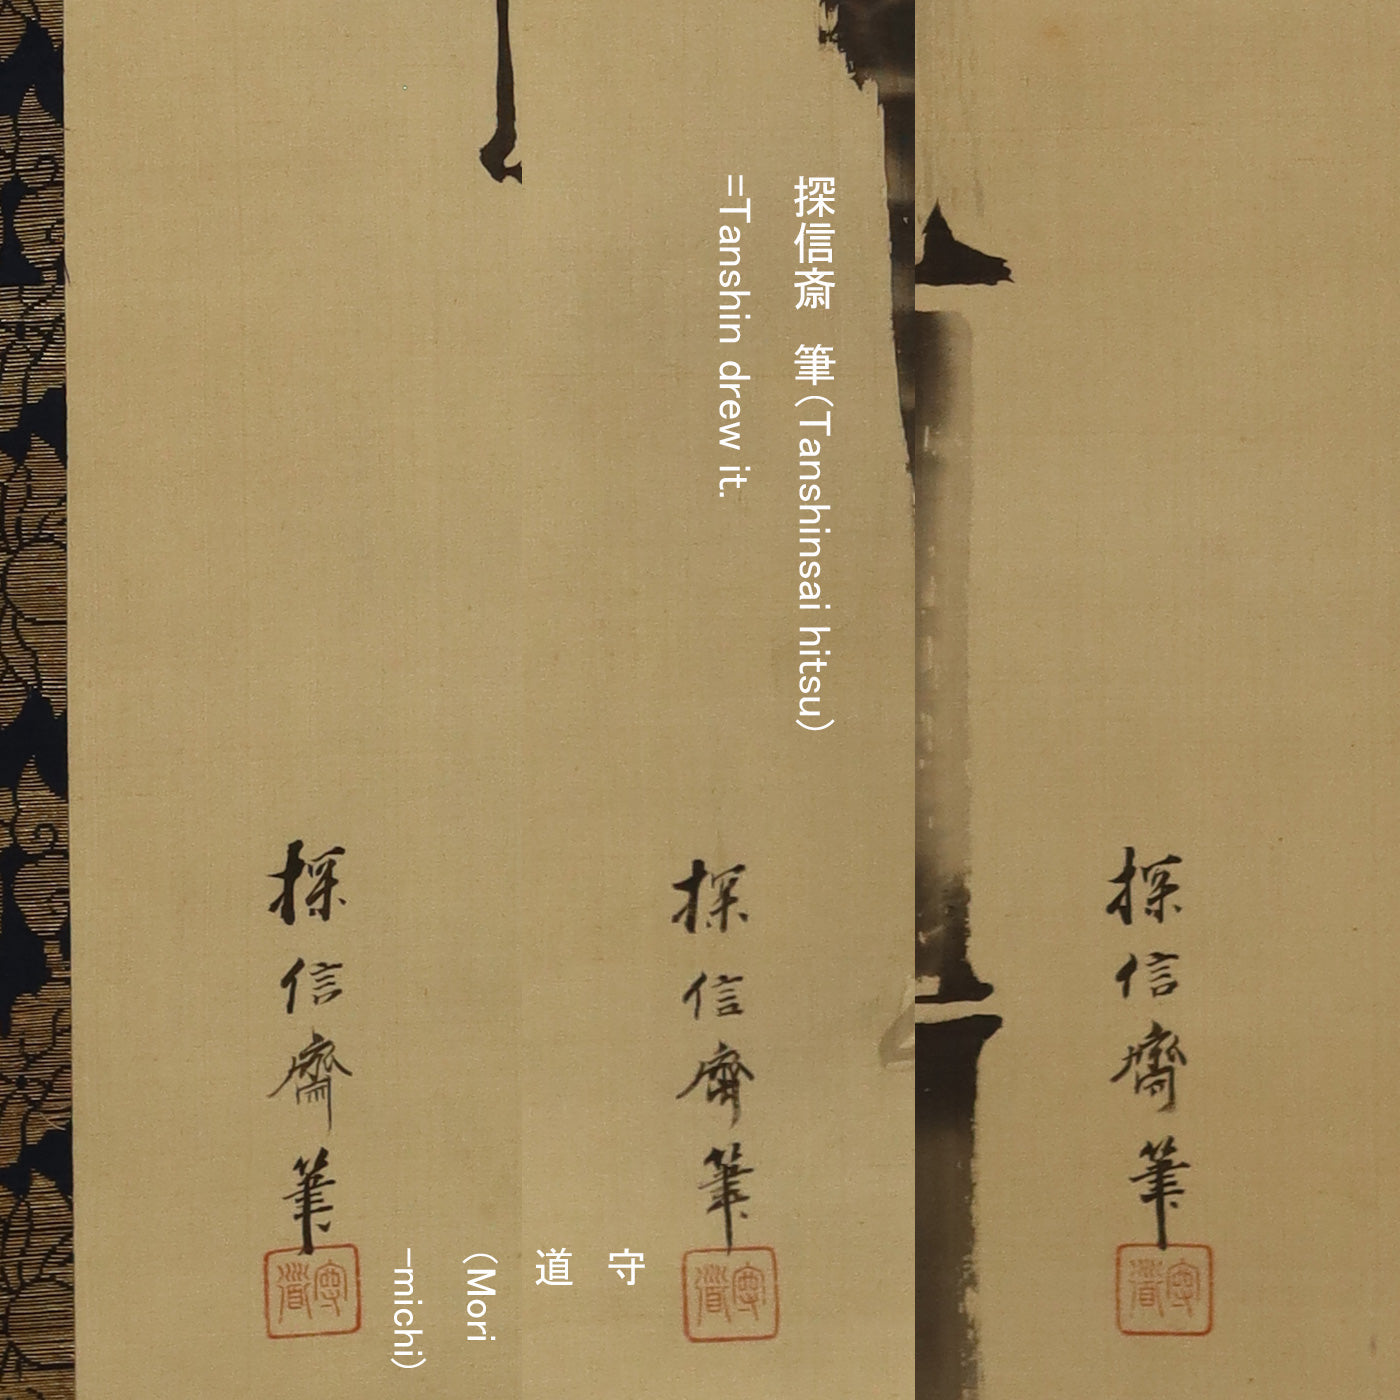 探信斎 筆(Tanshinsai hitsu)
=Tanshin drew it.
探信齋筆
探信齋筆
探信齋筆
守
道
(Mori
-michi)
守道
守道
守道